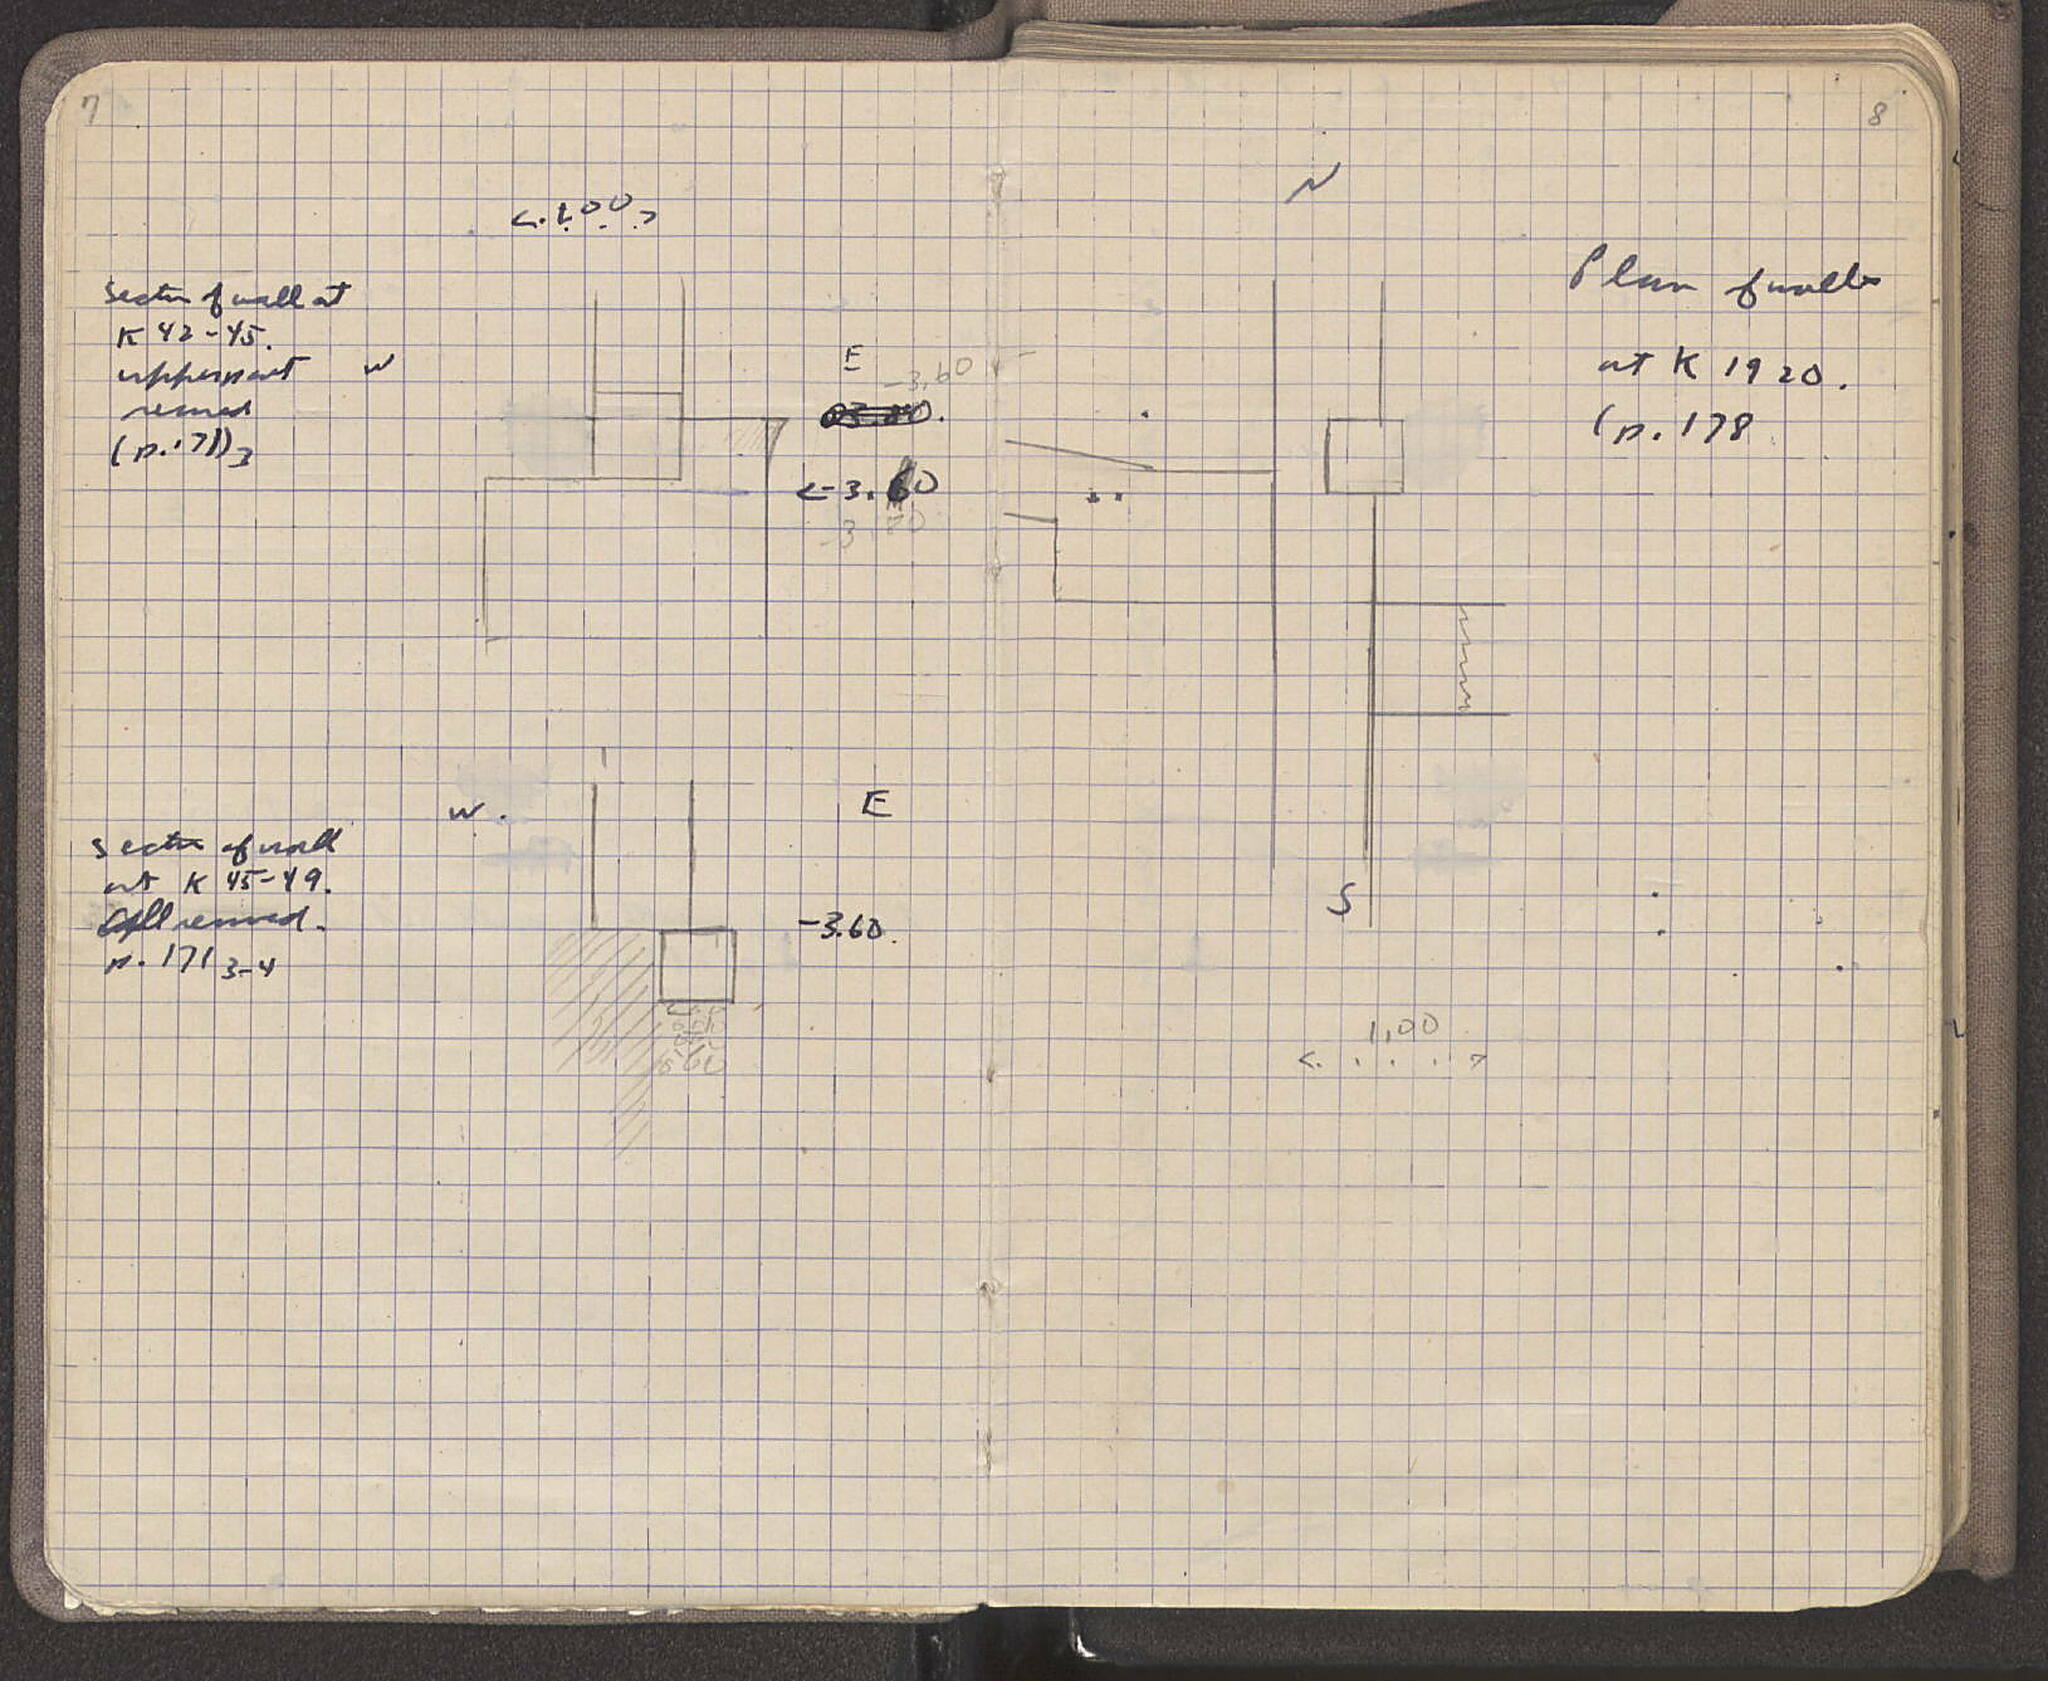 7
<. 1.00 . >
Section of wall at
K 42-45.
upper part
removed
(p. 171)3
W
E
-3.60
<-3.60
-3.80
W.
E
Section of wall
at K 45-49.
All removed.
p. 171 3-4
-3.60.
8
N
Plan of walls
at K 19 20.
(p. 178
S
1,00
<. . . . >